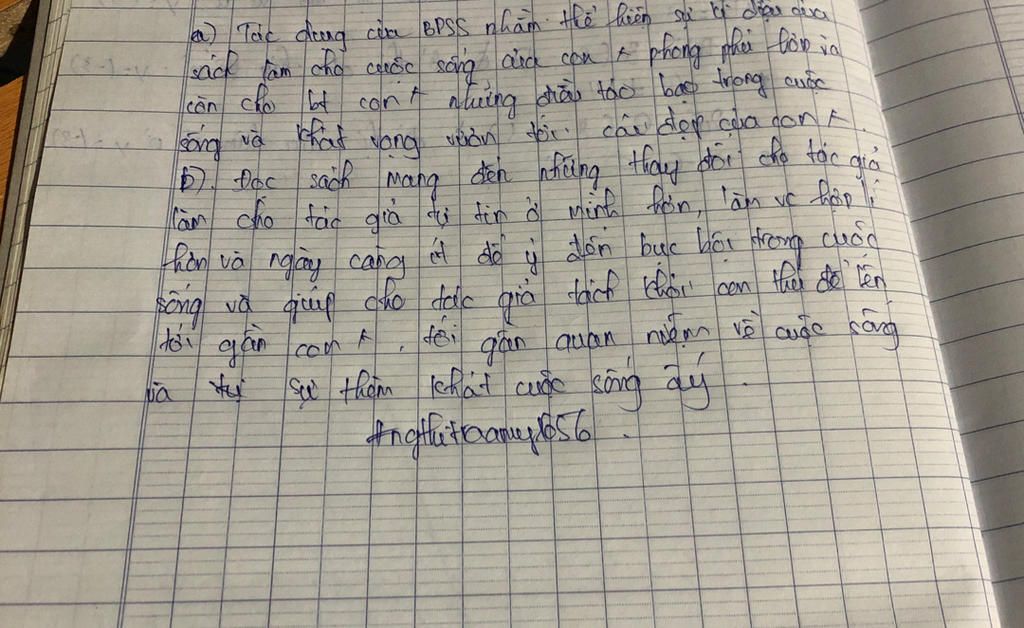 a) Tác dụng của BPSS nhằm thể hiện sự kì diệu của
sách làm cho cuộc sống của con ＋ phong phú hơn và
còn cho bt con ＋ những táo bạo trong cuộc
sống và khát vọng vươn tới cái đẹp của con ＋.
b). Đọc sách mang đến những thay đổi cho tác giả
làm cho tác giả tự tin ở mình hơn, làm vc hợp lí
hơn và ngày càng ít để ý đến bực bội trong cuộc
sống và giúp cho tác giả tách khỏi con thú để lên
tới gần con ＋, tới gần quan niệm về cuộc sống
và sự thèm khát cuộc sống ấy.